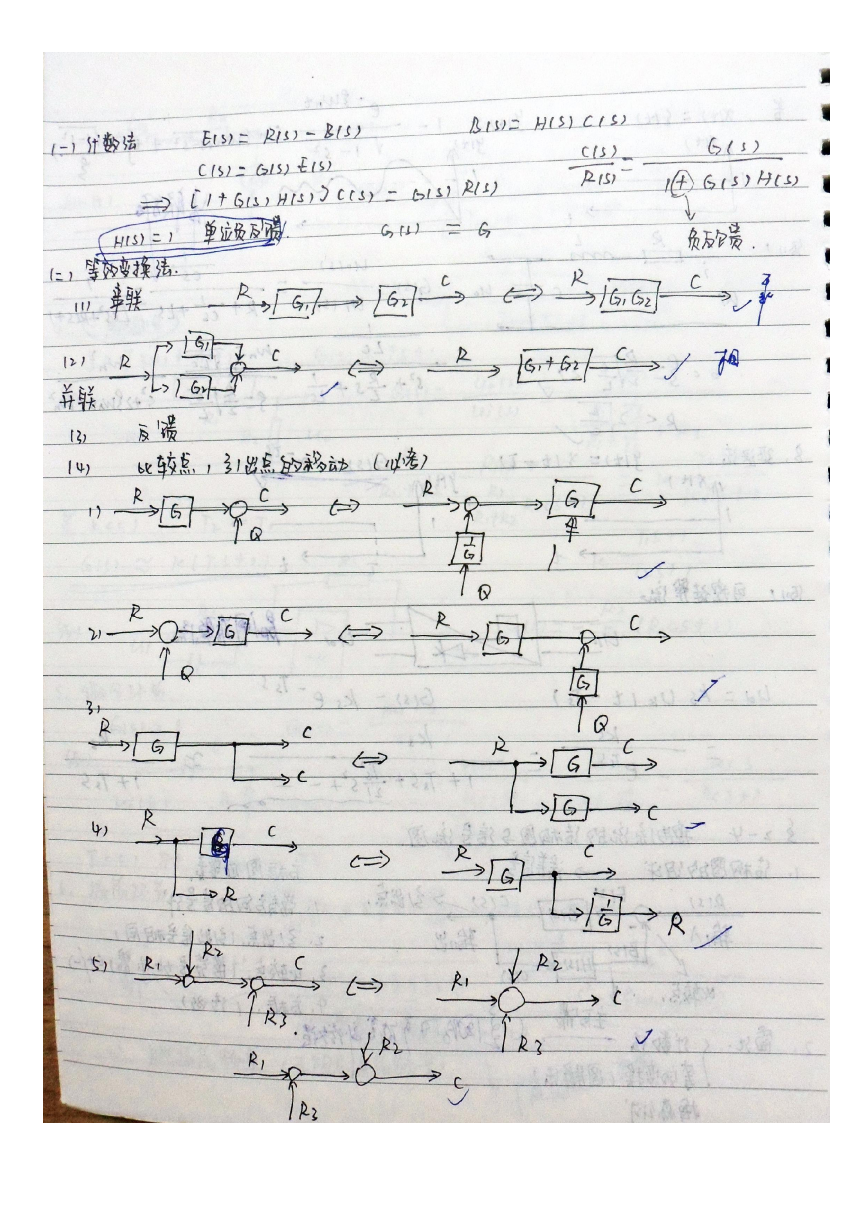 (一) 代数法 E(s) = R(s) - B(s) B(s) = H(s) C(s)
C(s) = G(s) E(s) C(s)/R(s) = G(s)/(1(+) G(s) H(s))
⟹ [1 + G(s) H(s)] C(s) = G(s) R(s)
H(s) = 1 单位负反馈. G(s) = G 负反馈.
(二) 等效变换法.
(1) 串联 R G₁ G₂ C ⟺ R G₁G₂ C ✓ 乘
(2) 并联 R G₁ G₂ C ✓ ⟺ R G₁+G₂ C ✓ 加
(3) 反馈
(4) 比较点,引出点的移动 (必考)
1) R G C Q ⟺ R G C 1/G Q ✓
2) R G C Q ⟺ R G C G Q ✓
3) R G C C ⟺ R G C G C ✓
4) R C R ⟺ R G C 1/G R ✓
5) R₁ R₂ C R₃. ⟺ R₁ R₂ C R₃ ✓
R₁ R₂ C R₃ ✓